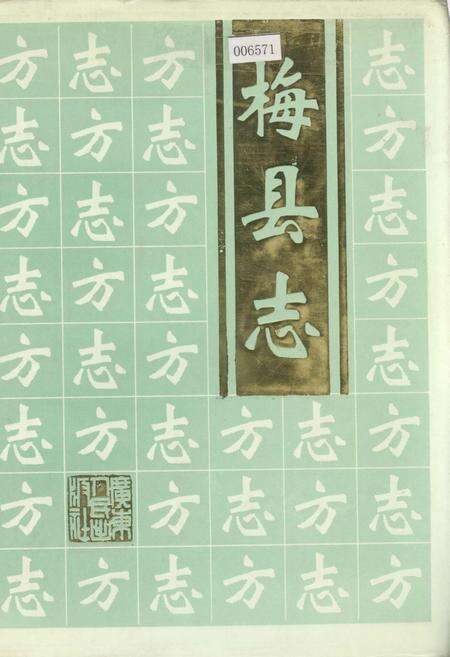 006571
梅县志
方志方志
志方志方
方志方志
志方志方
方志方志
志方志方志方
方方志方志
志方志方志方
廣東人民出版社